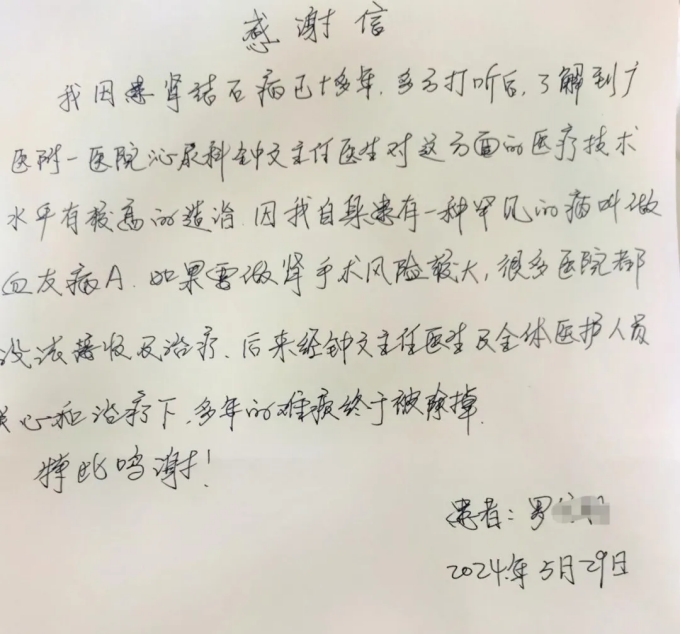 感谢信
我因患肾结石病已十多年，多方打听后，了解到广
医附一医院泌尿科钟文主任医生对这方面的医疗技术
水平有较高的造诣。因我自身患有一种罕见的病叫做
血友病A。如果需做肾手术风险较大，很多医院都
没法接收及治疗、后来经钟文主任医生及全体医护人员
关心和治疗下，多年的难疾终于被除掉。
特此鸣谢！
患者：罗
2024年5月29日